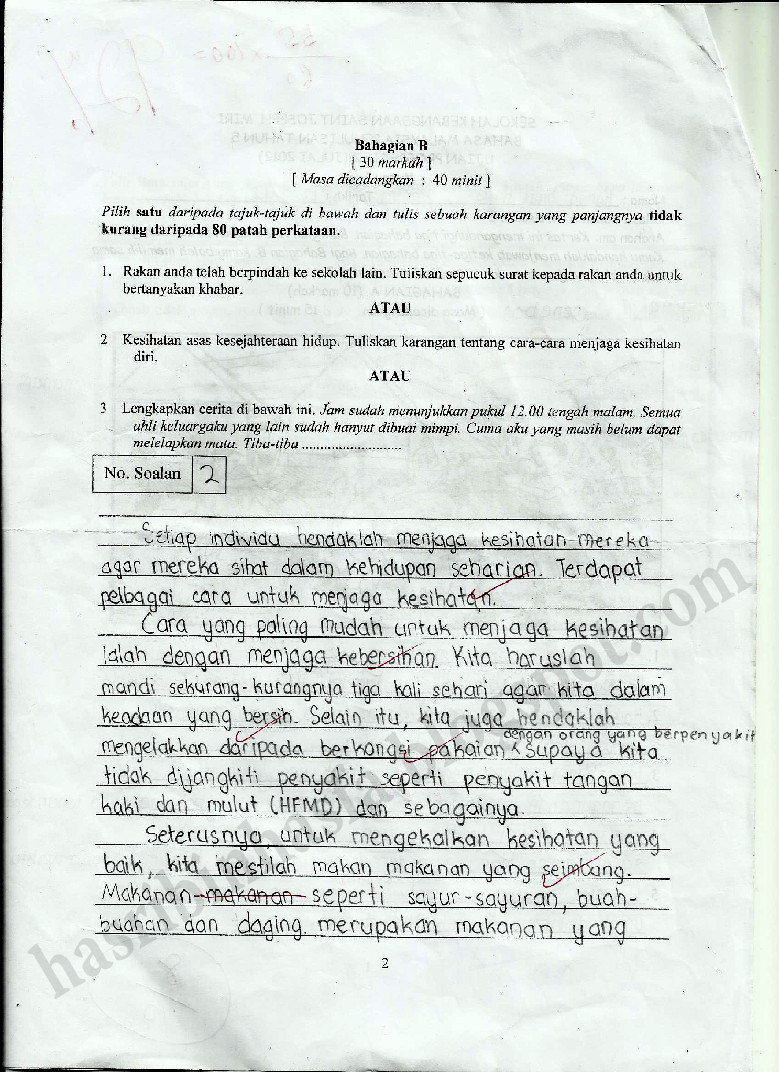 Bahagian B
[ 30 markah ]
[ Masa dicadangkan : 40 minit ]
Pilih satu daripada tajuk-tajuk di bawah dan tulis sebuah karangan yang panjangnya tidak
kurang daripada 80 patah perkataan.
1. Rakan anda telah berpindah ke sekolah lain. Tuliskan sepucuk surat kepada rakan anda untuk
bertanyakan khabar.
ATAU
2 Kesihatan asas kesejahteraan hidup. Tuliskan karangan tentang cara-cara menjaga kesihatan
diri.
ATAU
3 Lengkapkan cerita di bawah ini. Jam sudah menunjukkan pukul 12.00 tengah malam. Semua
ahli keluargaku yang lain sudah hanyut dibuai mimpi. Cuma aku yang masih belum dapat
melelapkan mata. Tiba-tiba ..........................
No. Soalan 2
Setiap individu hendaklah menjaga kesihatan mereka
agar mereka sihat dalam kehidupan seharian. Terdapat
pelbagai cara untuk menjaga kesihatan.
Cara yang paling mudah untuk menjaga kesihatan
ialah dengan menjaga kebersihan. Kita haruslah
mandi sekurang-kurangnya tiga kali sehari agar kita dalam
keadaan yang bersih. Selain itu, kita juga hendaklah
dengan orang yang berpenyakit
mengelakkan daripada berkongsi pakaian supaya kita
tidak dijangkiti penyakit seperti penyakit tangan
kaki dan mulut (HFMD) dan sebagainya.
Seterusnya, untuk mengekalkan kesihatan yang
baik, kita mestilah makan makanan yang seimbang.
Makanan-makanan seperti sayur-sayuran, buah-
buahan dan daging merupakan makanan yang
2